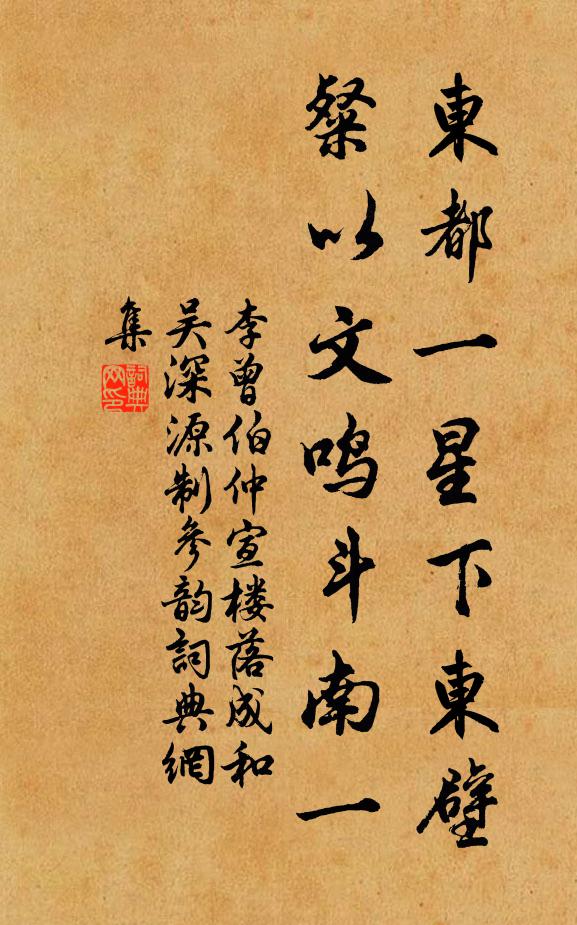 東都一星下東壁
粲以文鸣斗南一
李曾伯仲宣楼落成和
吴深源制參韵詞典網
集
詞典
网印